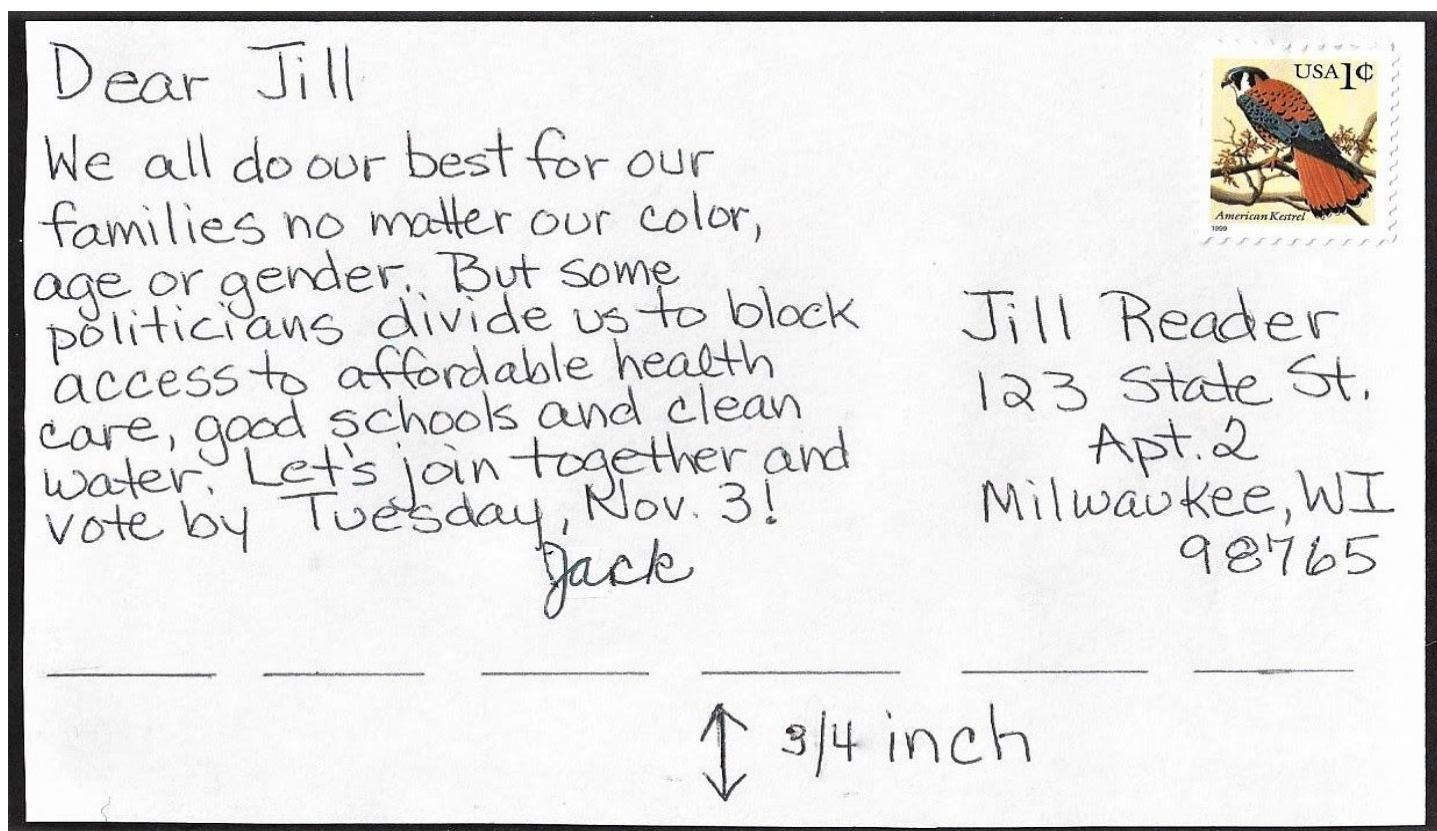 Dear Jill
We all do our best for our
families no matter our color,
age or gender. But some
politicians divide us to block
access to affordable health
care, good schools and clean
water. Let's join together and
vote by Tuesday, Nov. 3!
Jack
USA 1¢
American Kestrel
1999
Jill Reader
123 State St.
Apt. 2
Milwaukee, WI
98765
3/4 inch